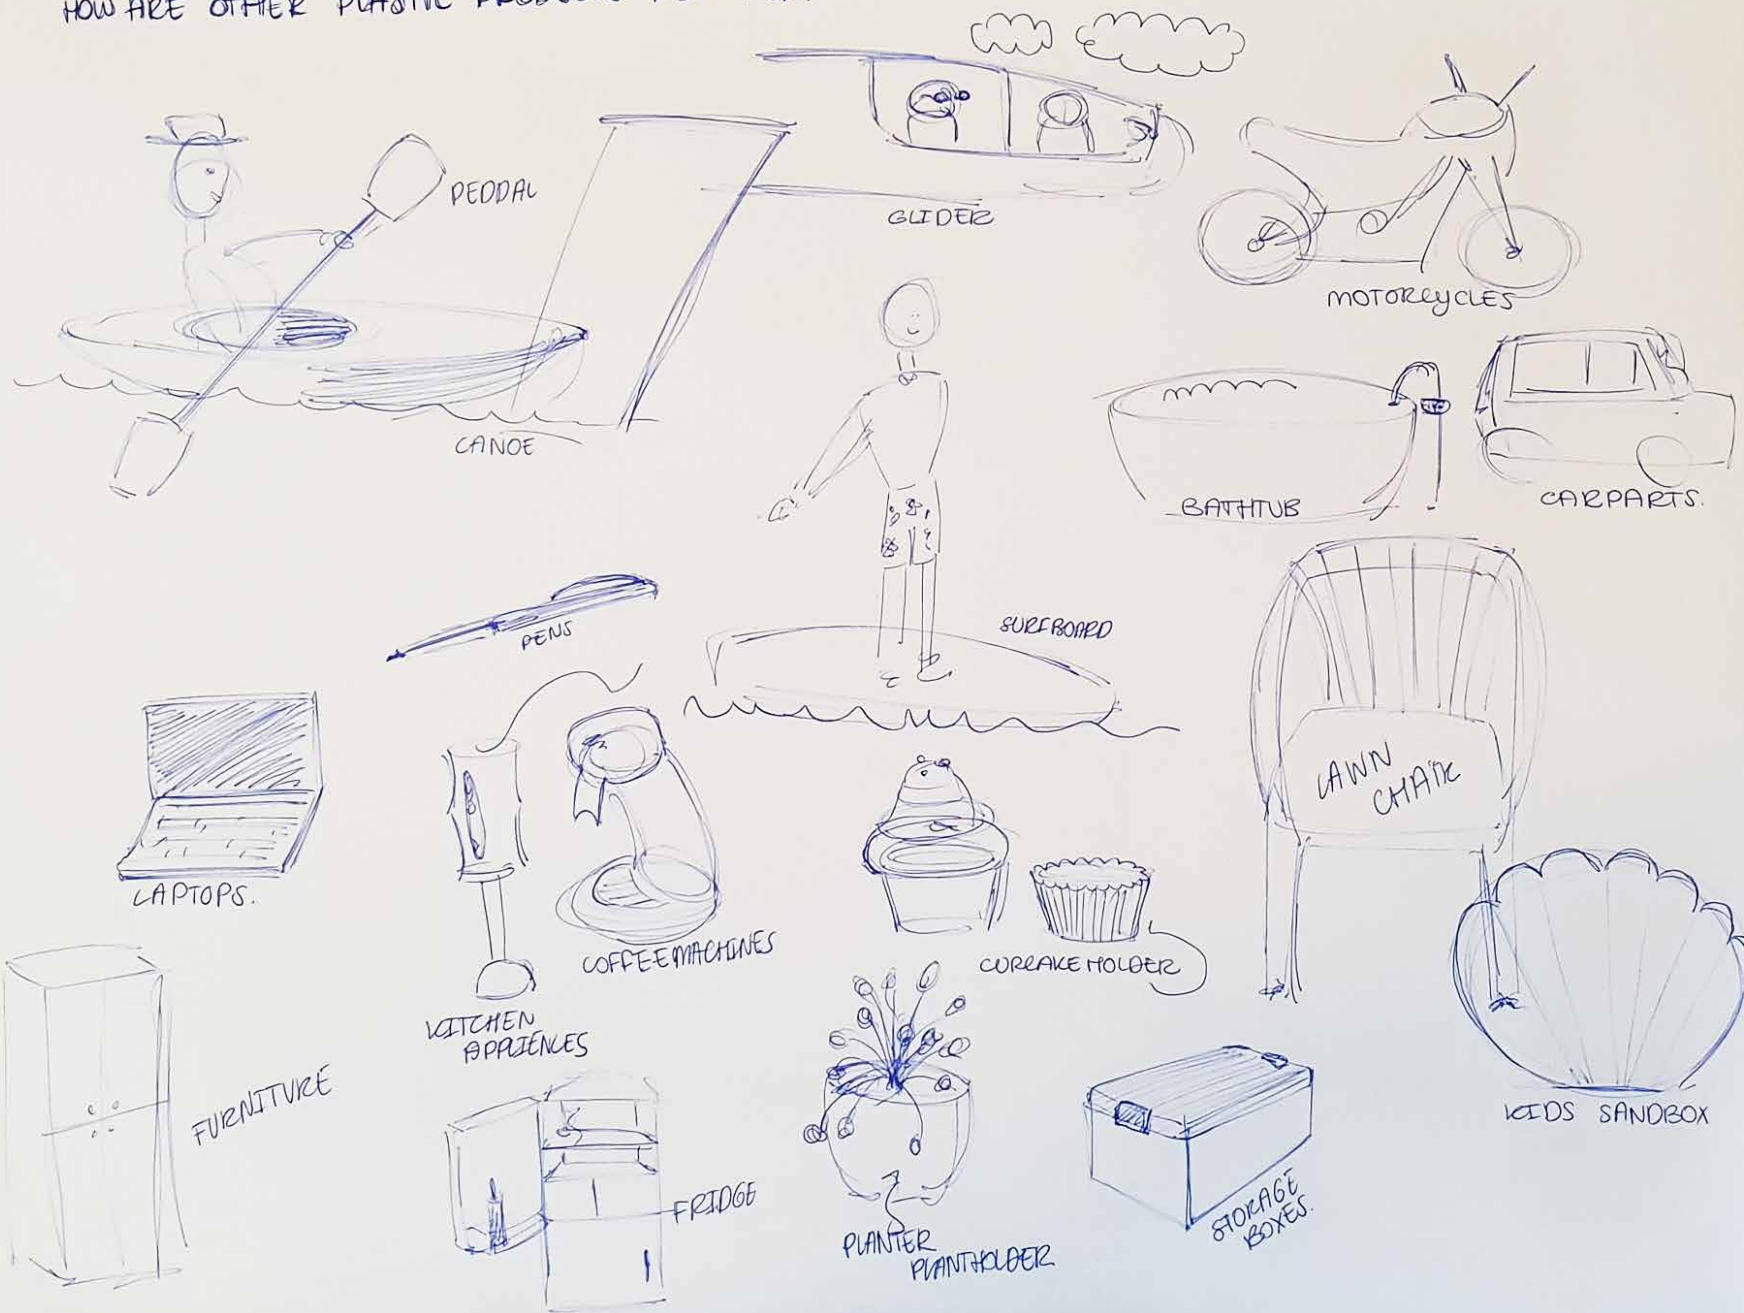 HOW ARE OTHER PLASTIC PRODUCTS
PEDDAL
GLIDER
MOTORCYCLES
CANOE
BATHTUB
CARPARTS.
PENS
SURFBOARD
LAWN
CHAIR
LAPTOPS.
COFFEEMACHINES
CUPCAKEHOLDER
KITCHEN
APPLIENCES
FURNITURE
KIDS SANDBOX
FRIDGE
STORAGE
BOXES.
PLANTER
PLANTHOLDER